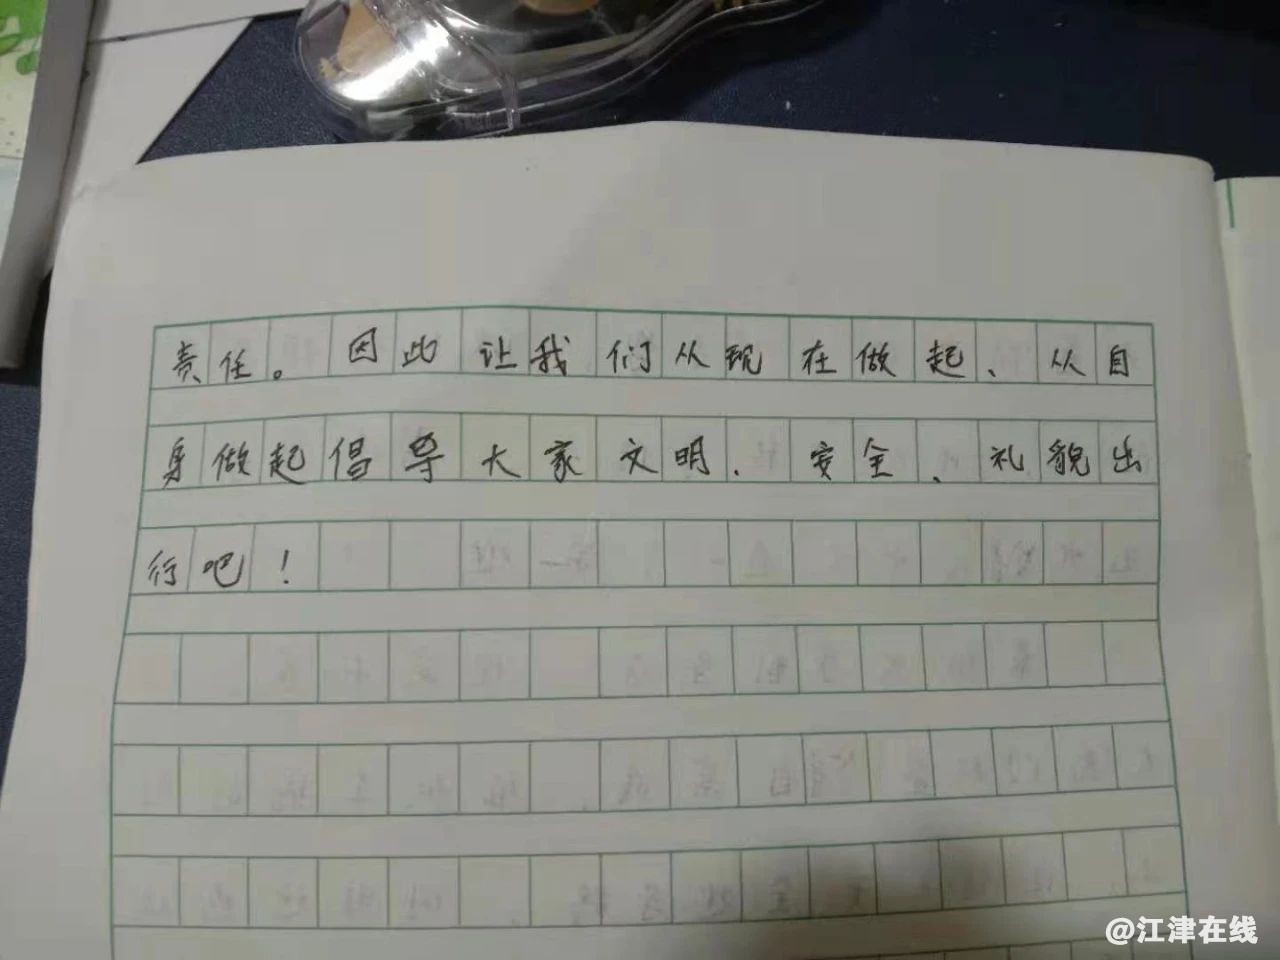 责任。因此让我们从现在做起、从自
身做起倡导大家文明、安全、礼貌出
行吧！
@江津在线